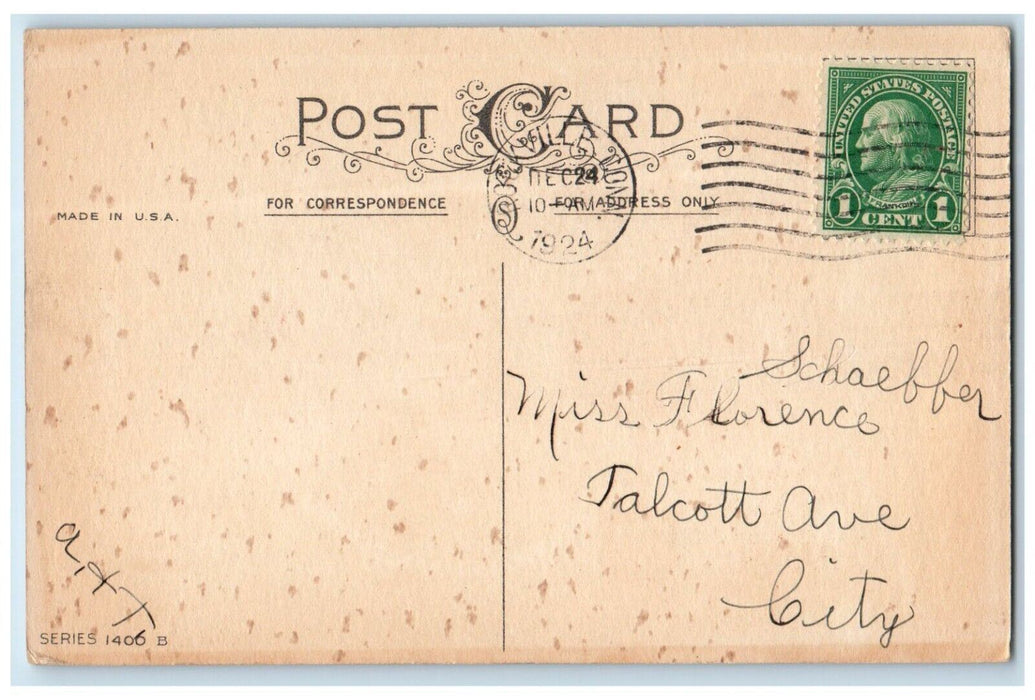 POST CARD
FOR CORRESPONDENCE
FOR ADDRESS ONLY
MADE IN U.S.A.
ROCKVILLE CONN.
DEC 24
10 - AM
1924
UNITED STATES POSTAGE
FRANKLIN
1 CENT 1
Schaeffer
Miss Florence
Talcott Ave
City
SERIES 1400 B